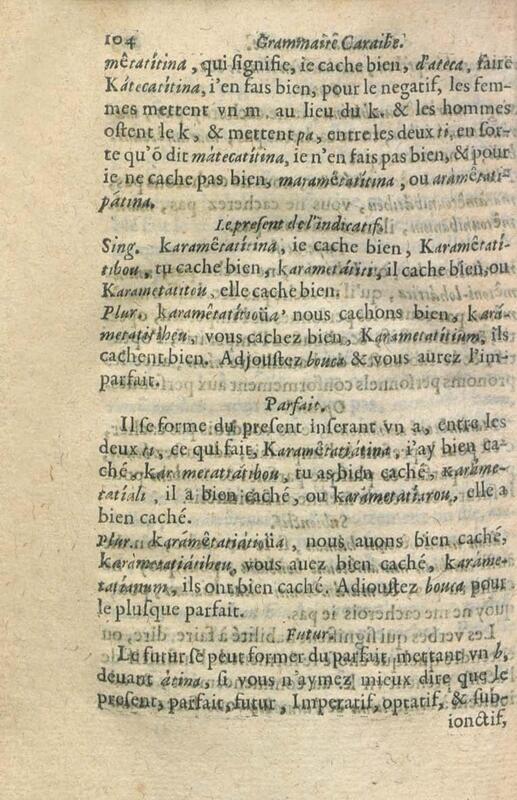 104 Grammaire Caraibe.
mêtatítina, qui signifie, ie cache bien, d'ateca, faire
Kátecatítina, i'en fais bien, pour le negatif, les fem-
mes mettent vn m, au lieu du k. & les hommes
ostent le k, & mettent pa, entre les deux ti, en sor-
te qu'ō dit mátecatitina, ie n'en fais pas bien, & pour
ie ne cache pas bien, maramêtatítina, ou aramêtati-
pátina.
Le present de l'indicatif.
Sing. Karamêtatitina, ie cache bien, Karamêtatí-
tibou, tu cache bien, karametátiti, il cache bien, ou
Karametatitou, elle cache bien.
Plur. karamêtatitioüa, nous cachons bien, kará-
metatitiheu, vous cachez bien, Karametatitium, ils
cachent bien. Adjoustez bouca & vous aurez l'im-
parfait.
Parfait.
Il se forme du present inserant vn a, entre les
deux ti, ce qui fait, Karamêtatiátina, i'ay bien ca-
ché, karámetatiátibou, tu as bien caché, karáme-
tatiali, il a bien caché, ou karámetatiarou, elle a
bien caché.
Plur. karamêtatiátioüa, nous auons bien caché,
karametatiátiheu, vous auez bien caché, karáme-
tatianum, ils ont bien caché. Adioustez bouca pour
le plusque parfait.
Futur.
Le futur se peut former du parfait mettant vn b,
deuant átina, si vous n'aymez mieux dire que le
present, parfait, futur, Imperatif, optatif, & sub-
ionctif,